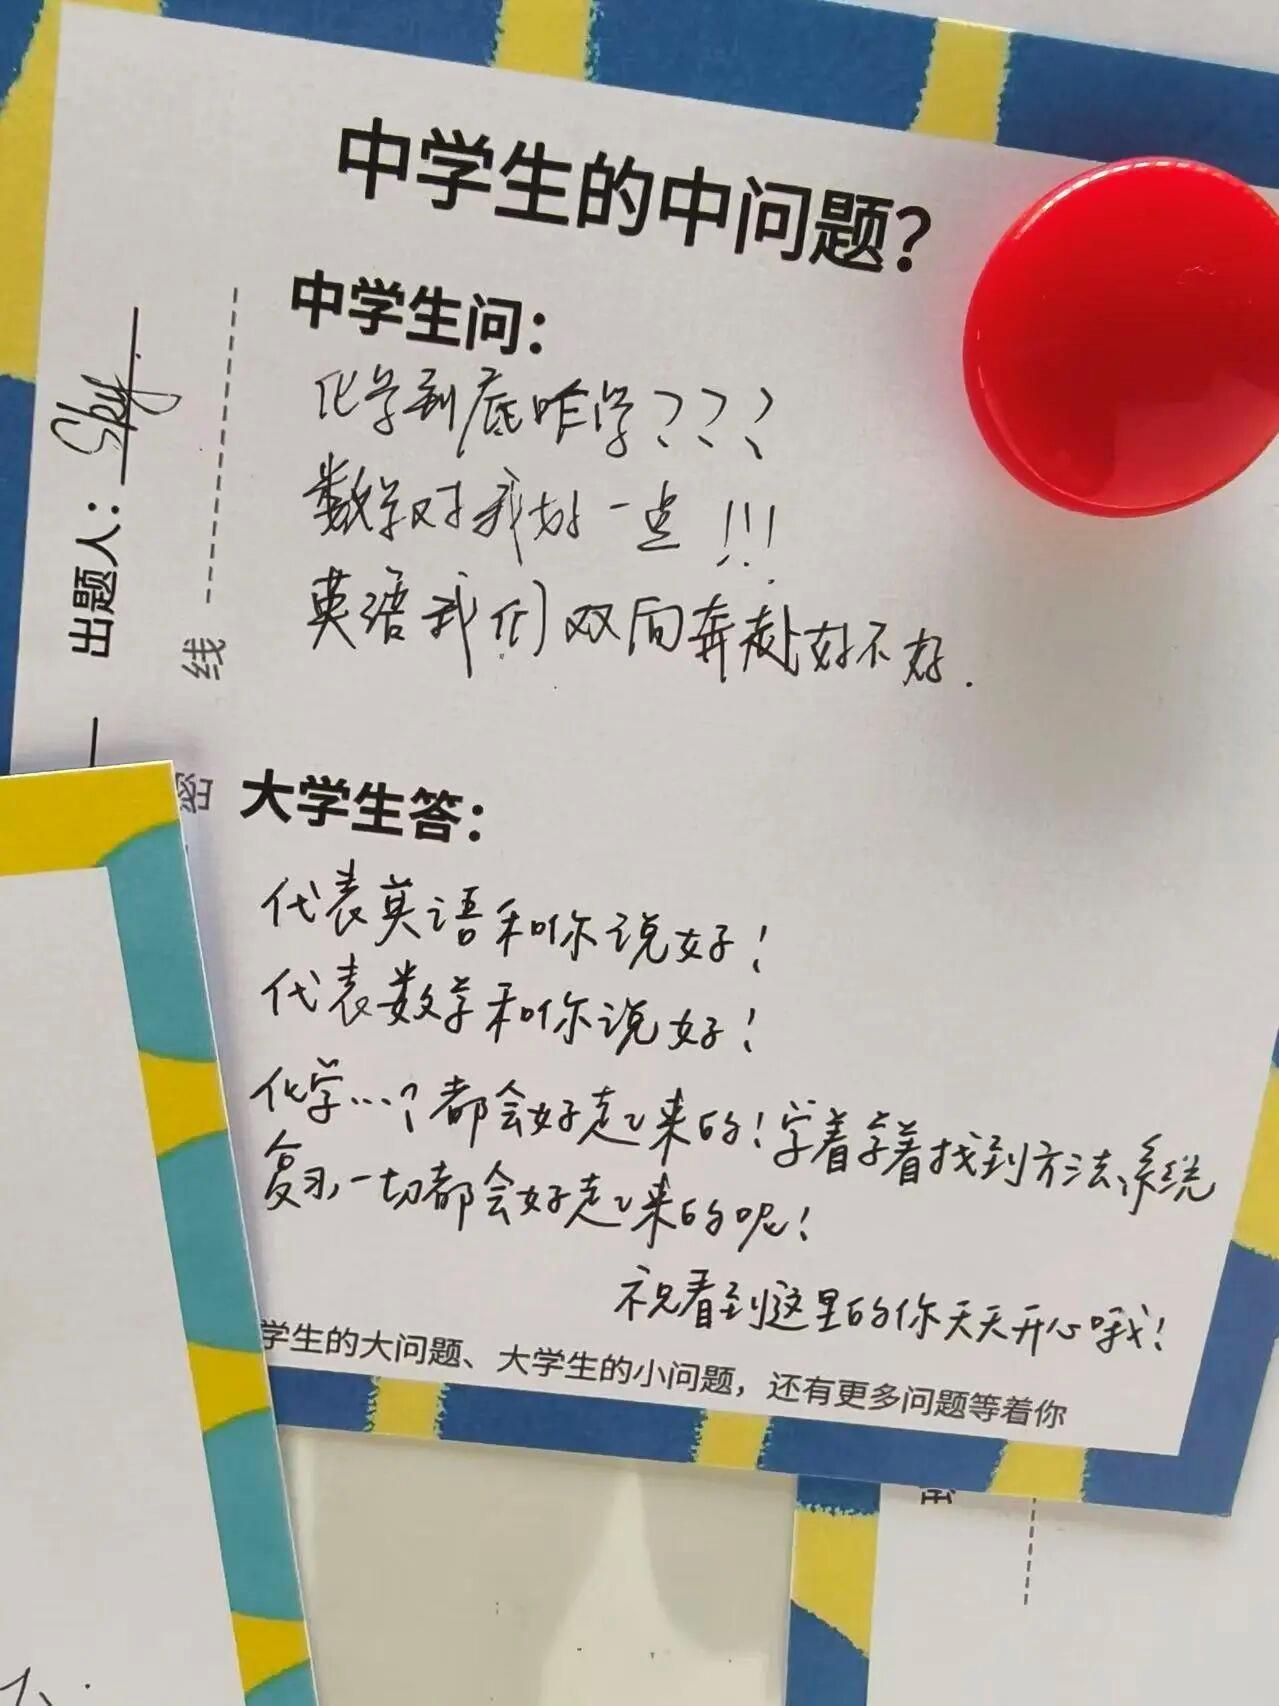 中学生的中问题?
中学生问:
化学到底咋学???
数学对我好一点!!!
英语我们双向奔赴好不好.
出题人: Sky.
线
密
大学生答:
代表英语和你说好!
代表数学和你说好!
化学...个都会好起来的!学着学着找到方法、系统
复习,一切都会好起来的呢!
祝看到这里的你天天开心哦!
学生的大问题、大学生的小问题,还有更多问题等着你